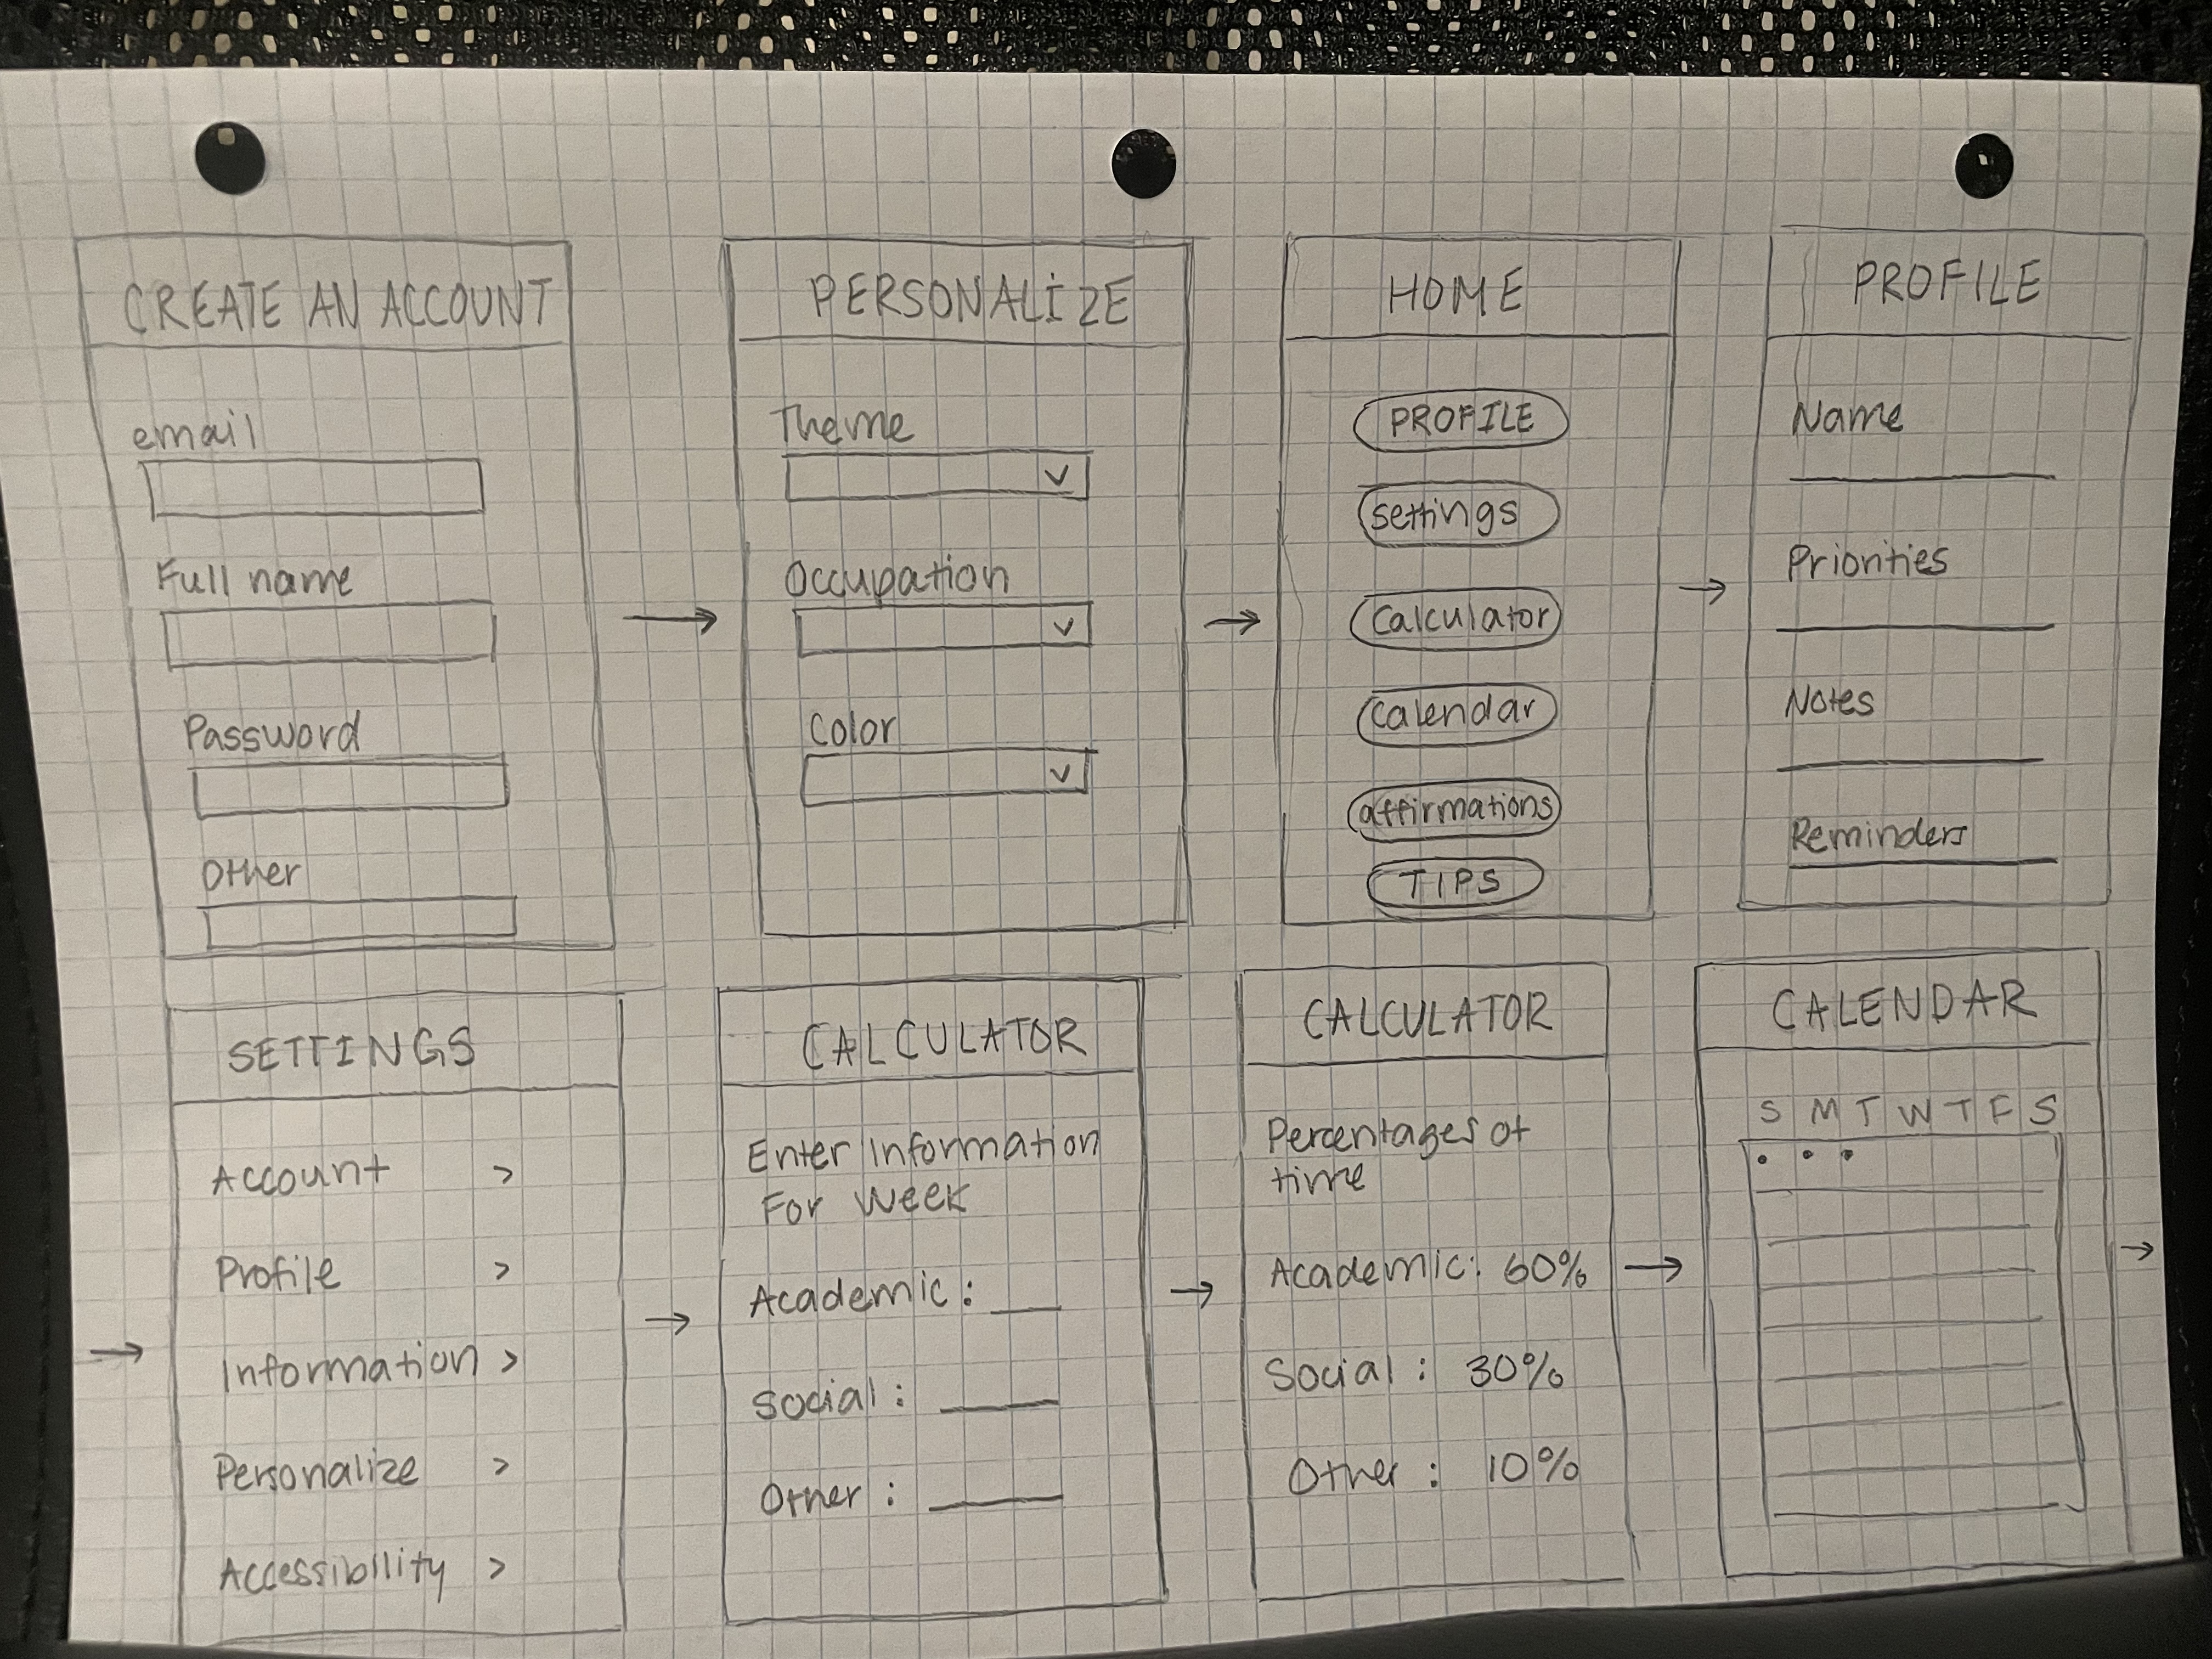 CREATE AN ACCOUNT
email
Full name
Password
Other
PERSONALIZE
Theme
Occupation
Color
HOME
PROFILE
settings
Calculator
Calendar
affirmations
TIPS
PROFILE
Name
Priorities
Notes
Reminders
SETTINGS
Account >
Profile >
Information >
Personalize >
Accessibility >
CALCULATOR
Enter Information
For Week
Academic : __
Social : ___
Other : ___
CALCULATOR
Percentages of
time
Academic: 60%
Social : 30%
Other : 10%
CALENDAR
S M T W T F S